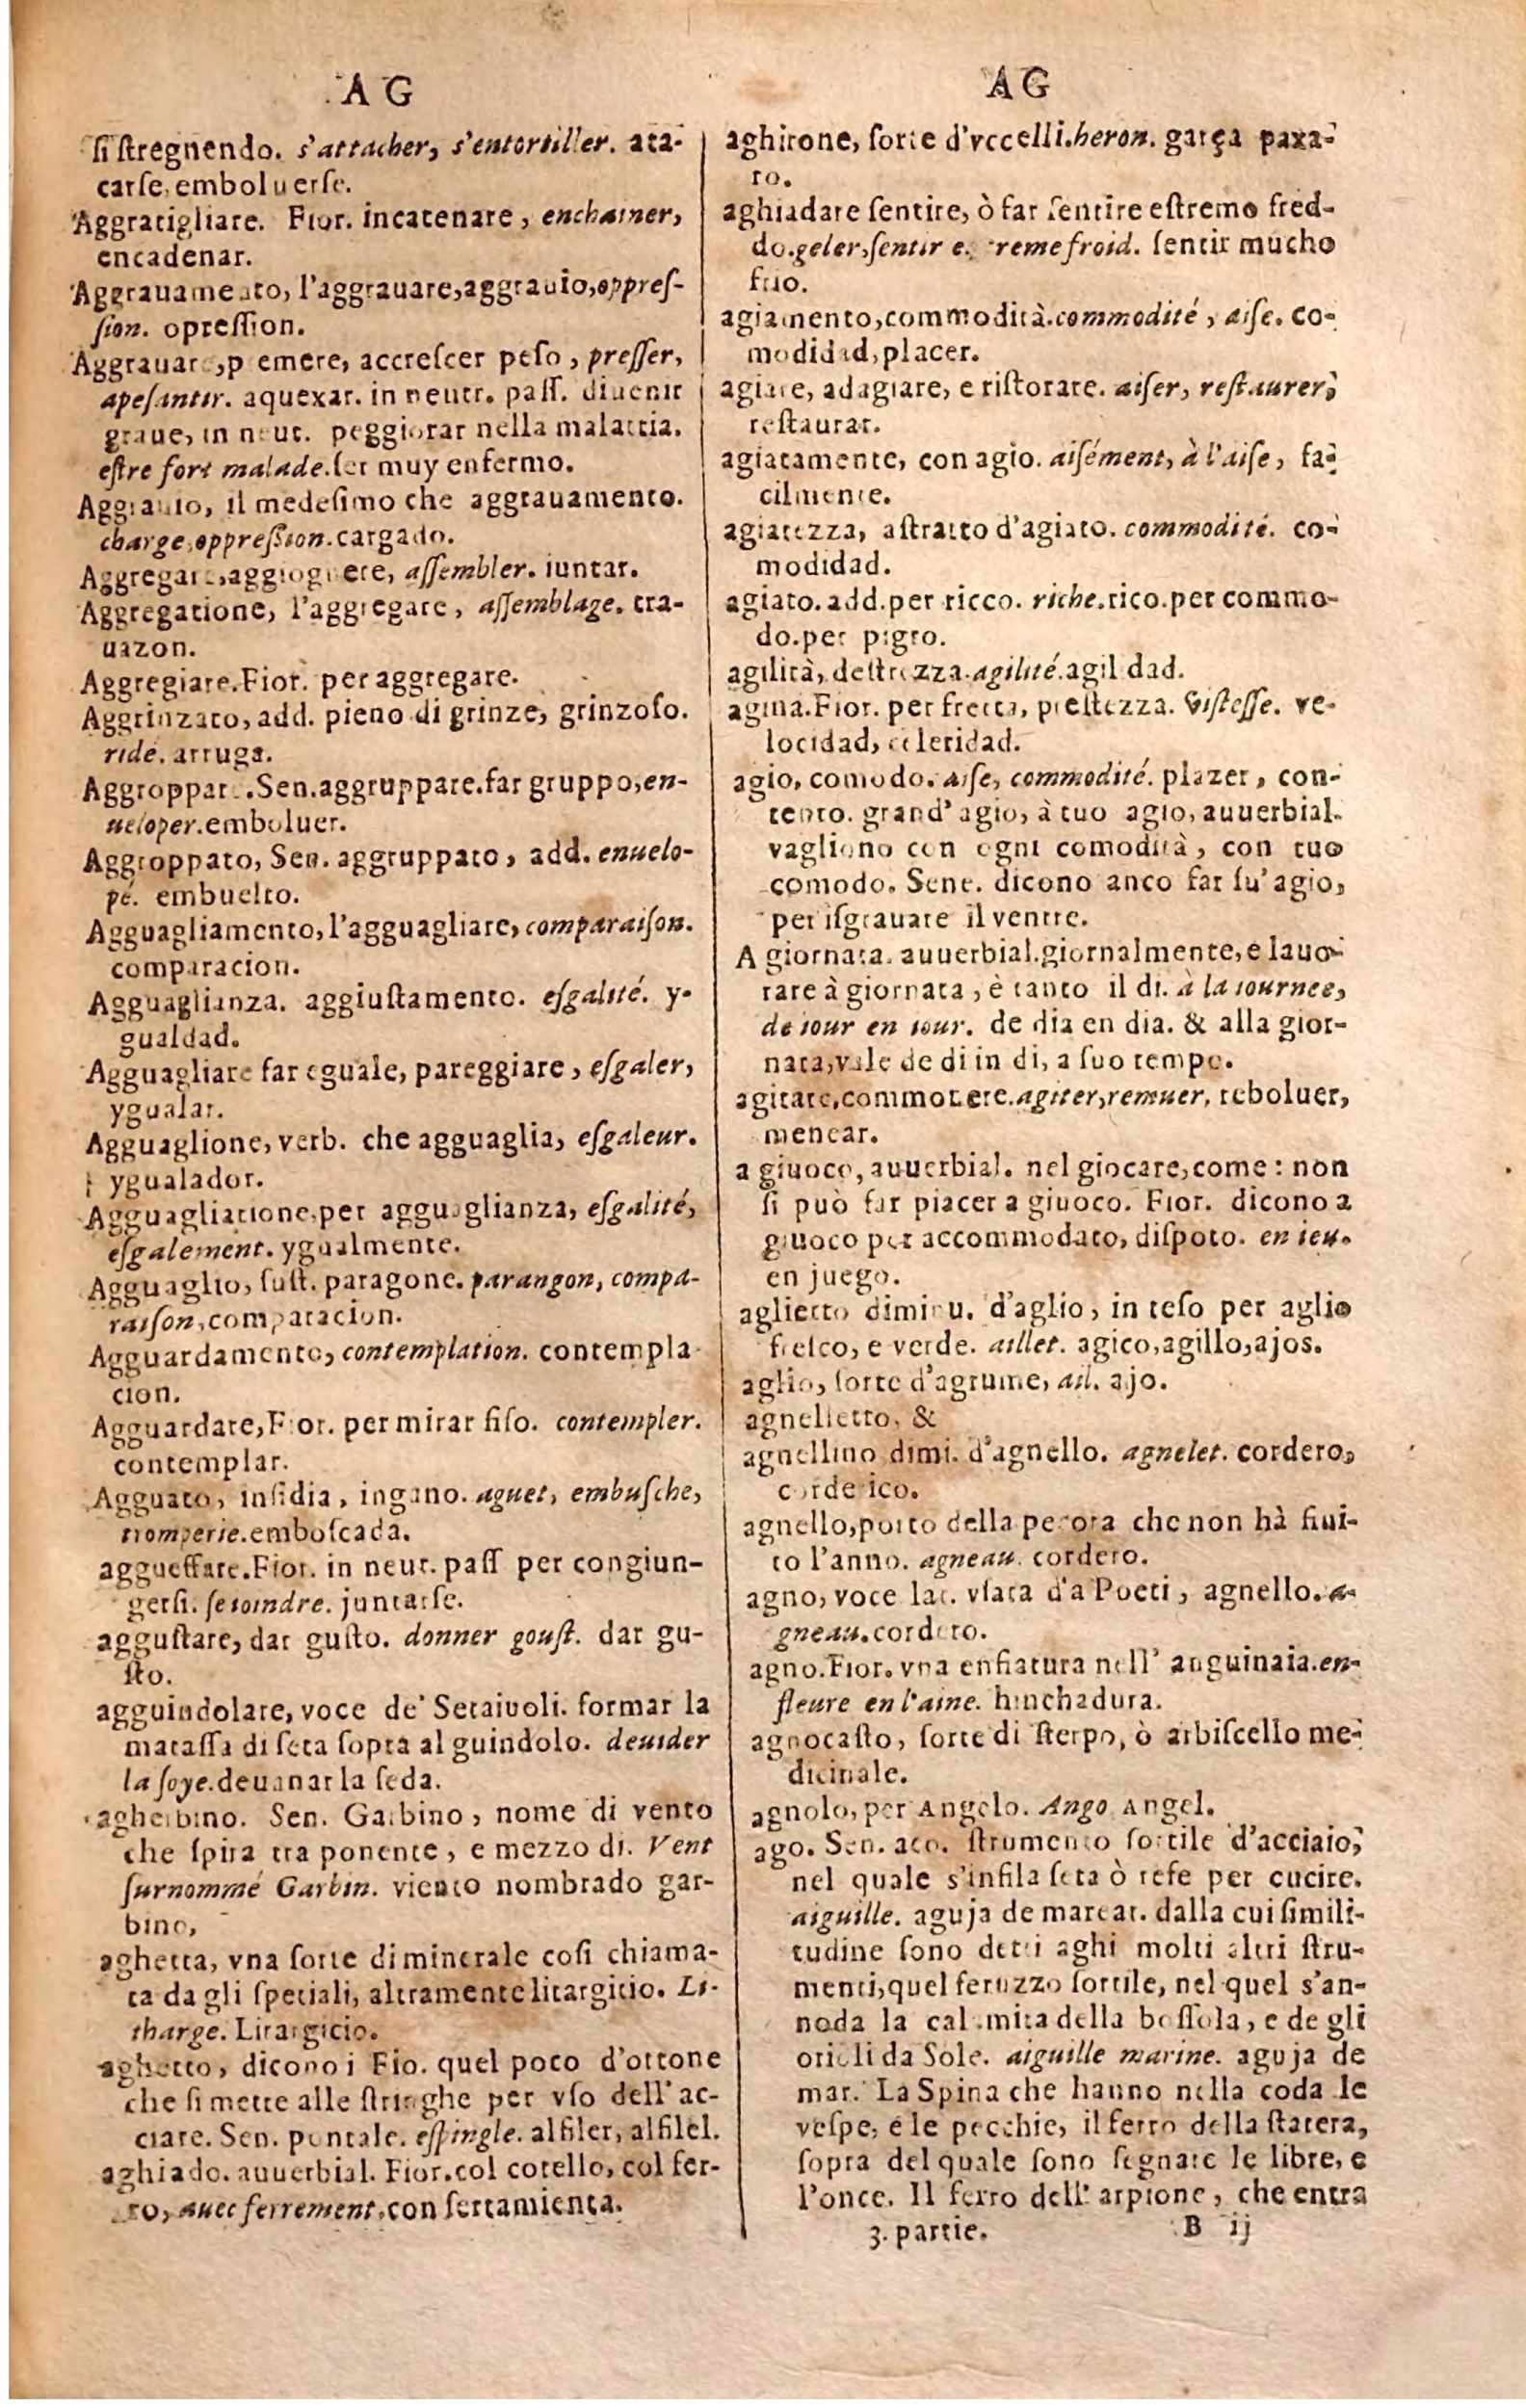 AG
si stregnendo. s'attacher, s'entortiller. ata-
carse, emboluerse.
Aggratigliare. Fior. incatenare, enchainer,
encadenar.
Aggrauamento, l'aggrauare, aggrauio, oppres-
sion. opression.
Aggrauare, premere, accrescer peso, presser,
apesantir. aquexar. in neutr. pass. diuenir
graue, in neut. peggiorar nella malattia.
estre fort malade. ser muy enfermo.
Aggrauio, il medesimo che aggrauamento.
charge, oppression. cargado.
Aggregare, aggiognere, assembler. iuntar.
Aggregatione, l'aggregare, assemblage. tra-
uazon.
Aggregiare. Fior. per aggregare.
Aggrinzato, add. pieno di grinze, grinzoso.
ridé. arruga.
Aggroppare. Sen. aggruppare. far gruppo, en-
ueloper. emboluer.
Aggroppato, Sen. aggruppato, add. enuelo-
pé. embuelto.
Agguagliamento, l'agguagliare, comparaison.
comparacion.
Agguaglianza. aggiustamento. esgalité. y-
gualdad.
Agguagliare far eguale, pareggiare, esgaler,
ygualar.
Agguaglione, verb. che agguaglia, esgaleur.
ygualador.
Agguagliatione, per agguaglianza, esgalité,
esgalement. ygualmente.
Agguaglio, sust. paragone. parangon, compa-
raison, comparacion.
Agguardamento, contemplation. contempla
cion.
Agguardare, Fior. per mirar fiso. contempler.
contemplar.
Agguato, insidia, ingano. aguet, embusche,
tromperie. emboscada.
aggueffare. Fior. in neut. pass per congiun-
gersi. se ioindre. juntarse.
aggustare, dar gusto. donner goust. dar gu-
sto.
agguindolare, voce de' Setaiuoli. formar la
matassa di seta sopra al guindolo. deuider
la soye. deuanar la seda.
agherbino. Sen. Garbino, nome di vento
che spira tra ponente, e mezzo di. Vent
surnommé Garbin. viento nombrado gar-
bino,
aghetta, vna sorte di minerale cosi chiama-
ta da gli speciali, altramente litargicio. Li-
tharge. Litargicio.
aghetto, dicono i Fio. quel poco d'ottone
che si mette alle stringhe per vso dell'ac-
ciare. Sen. pontale. espingle. alfiler, alfilel.
aghiado. auuerbial. Fior. col cotello, col fer-
ro, auec ferrement, con ferramienta.
AG
aghirone, sorte d'vccelli. heron. garça paxa-
ro.
aghiadare sentire, ò far sentire estremo fred-
do. geler, sentir extreme froid. sentir mucho
frio.
agiamento, commodità. commodité, aise. co-
modidad, placer.
agiare, adagiare, e ristorare. aiser, restaurer,
restaurar.
agiatamente, con agio. aisément, à l'aise, fa-
cilmente.
agiatezza, astratto d'agiato. commodité. co-
modidad.
agiato. add. per ricco. riche. rico. per commo-
do. per pigro.
agilità, destrezza. agilité. agilidad.
agina. Fior. per fretta, prestezza. vistesse. ve-
locidad, celeridad.
agio, comodo. aise, commodité. plazer, con-
tento. grand'agio, à tuo agio, auuerbial.
vagliono con ogni comodità, con tuo
comodo. Sene. dicono anco far su' agio,
per isgrauare il ventre.
A giornata. auuerbial. giornalmente, e lauo-
rare à giornata, è tanto il di. à la iournee,
de iour en iour. de dia en dia. & alla gior-
nata, vale de di in di, a suo tempo.
agitare, commouere. agiter, remuer, reboluer,
menear.
a giuoco, auuerbial. nel giocare, come: non
si può far piacer a giuoco. Fior. dicono a
giuoco per accommodato, dispoto. en ieu.
en juego.
aglietto diminu. d'aglio, in teso per aglio
fresco, e verde. aillet. agico, agillo, ajos.
aglio, sorte d'agrume, ail. ajo.
agnelletto, &
agnellino dimi. d'agnello. agnelet. cordero,
corderico.
agnello, porto della pecora che non hà fini-
to l'anno. agneau. cordero.
agno, voce lat. vsata d'a Poeti, agnello. a-
gneau. cordero.
agno. Fior. vna enfiatura nell' anguinaia. en-
fleure en l'aine. hinchadura.
agnocasto, sorte di sterpo, ò arbiscello me-
dicinale.
agnolo, per Angelo. Ango Angel.
ago. Sen. aco. strumento sottile d'acciaio,
nel quale s'infila seta ò refe per cucire.
aiguille. aguja de marear. dalla cui simili-
tudine sono detti aghi molti altri stru-
menti, quel feruzzo sottile, nel quel s'an-
noda la calamita della bossola, e de gli
orioli da Sole. aiguille marine. aguja de
mar. La Spina che hanno nella coda le
vespe, e le pecchie, il ferro della statera,
sopra del quale sono segnate le libre, e
l'once. Il ferro dell' arpione, che entra
3. partie. B ij